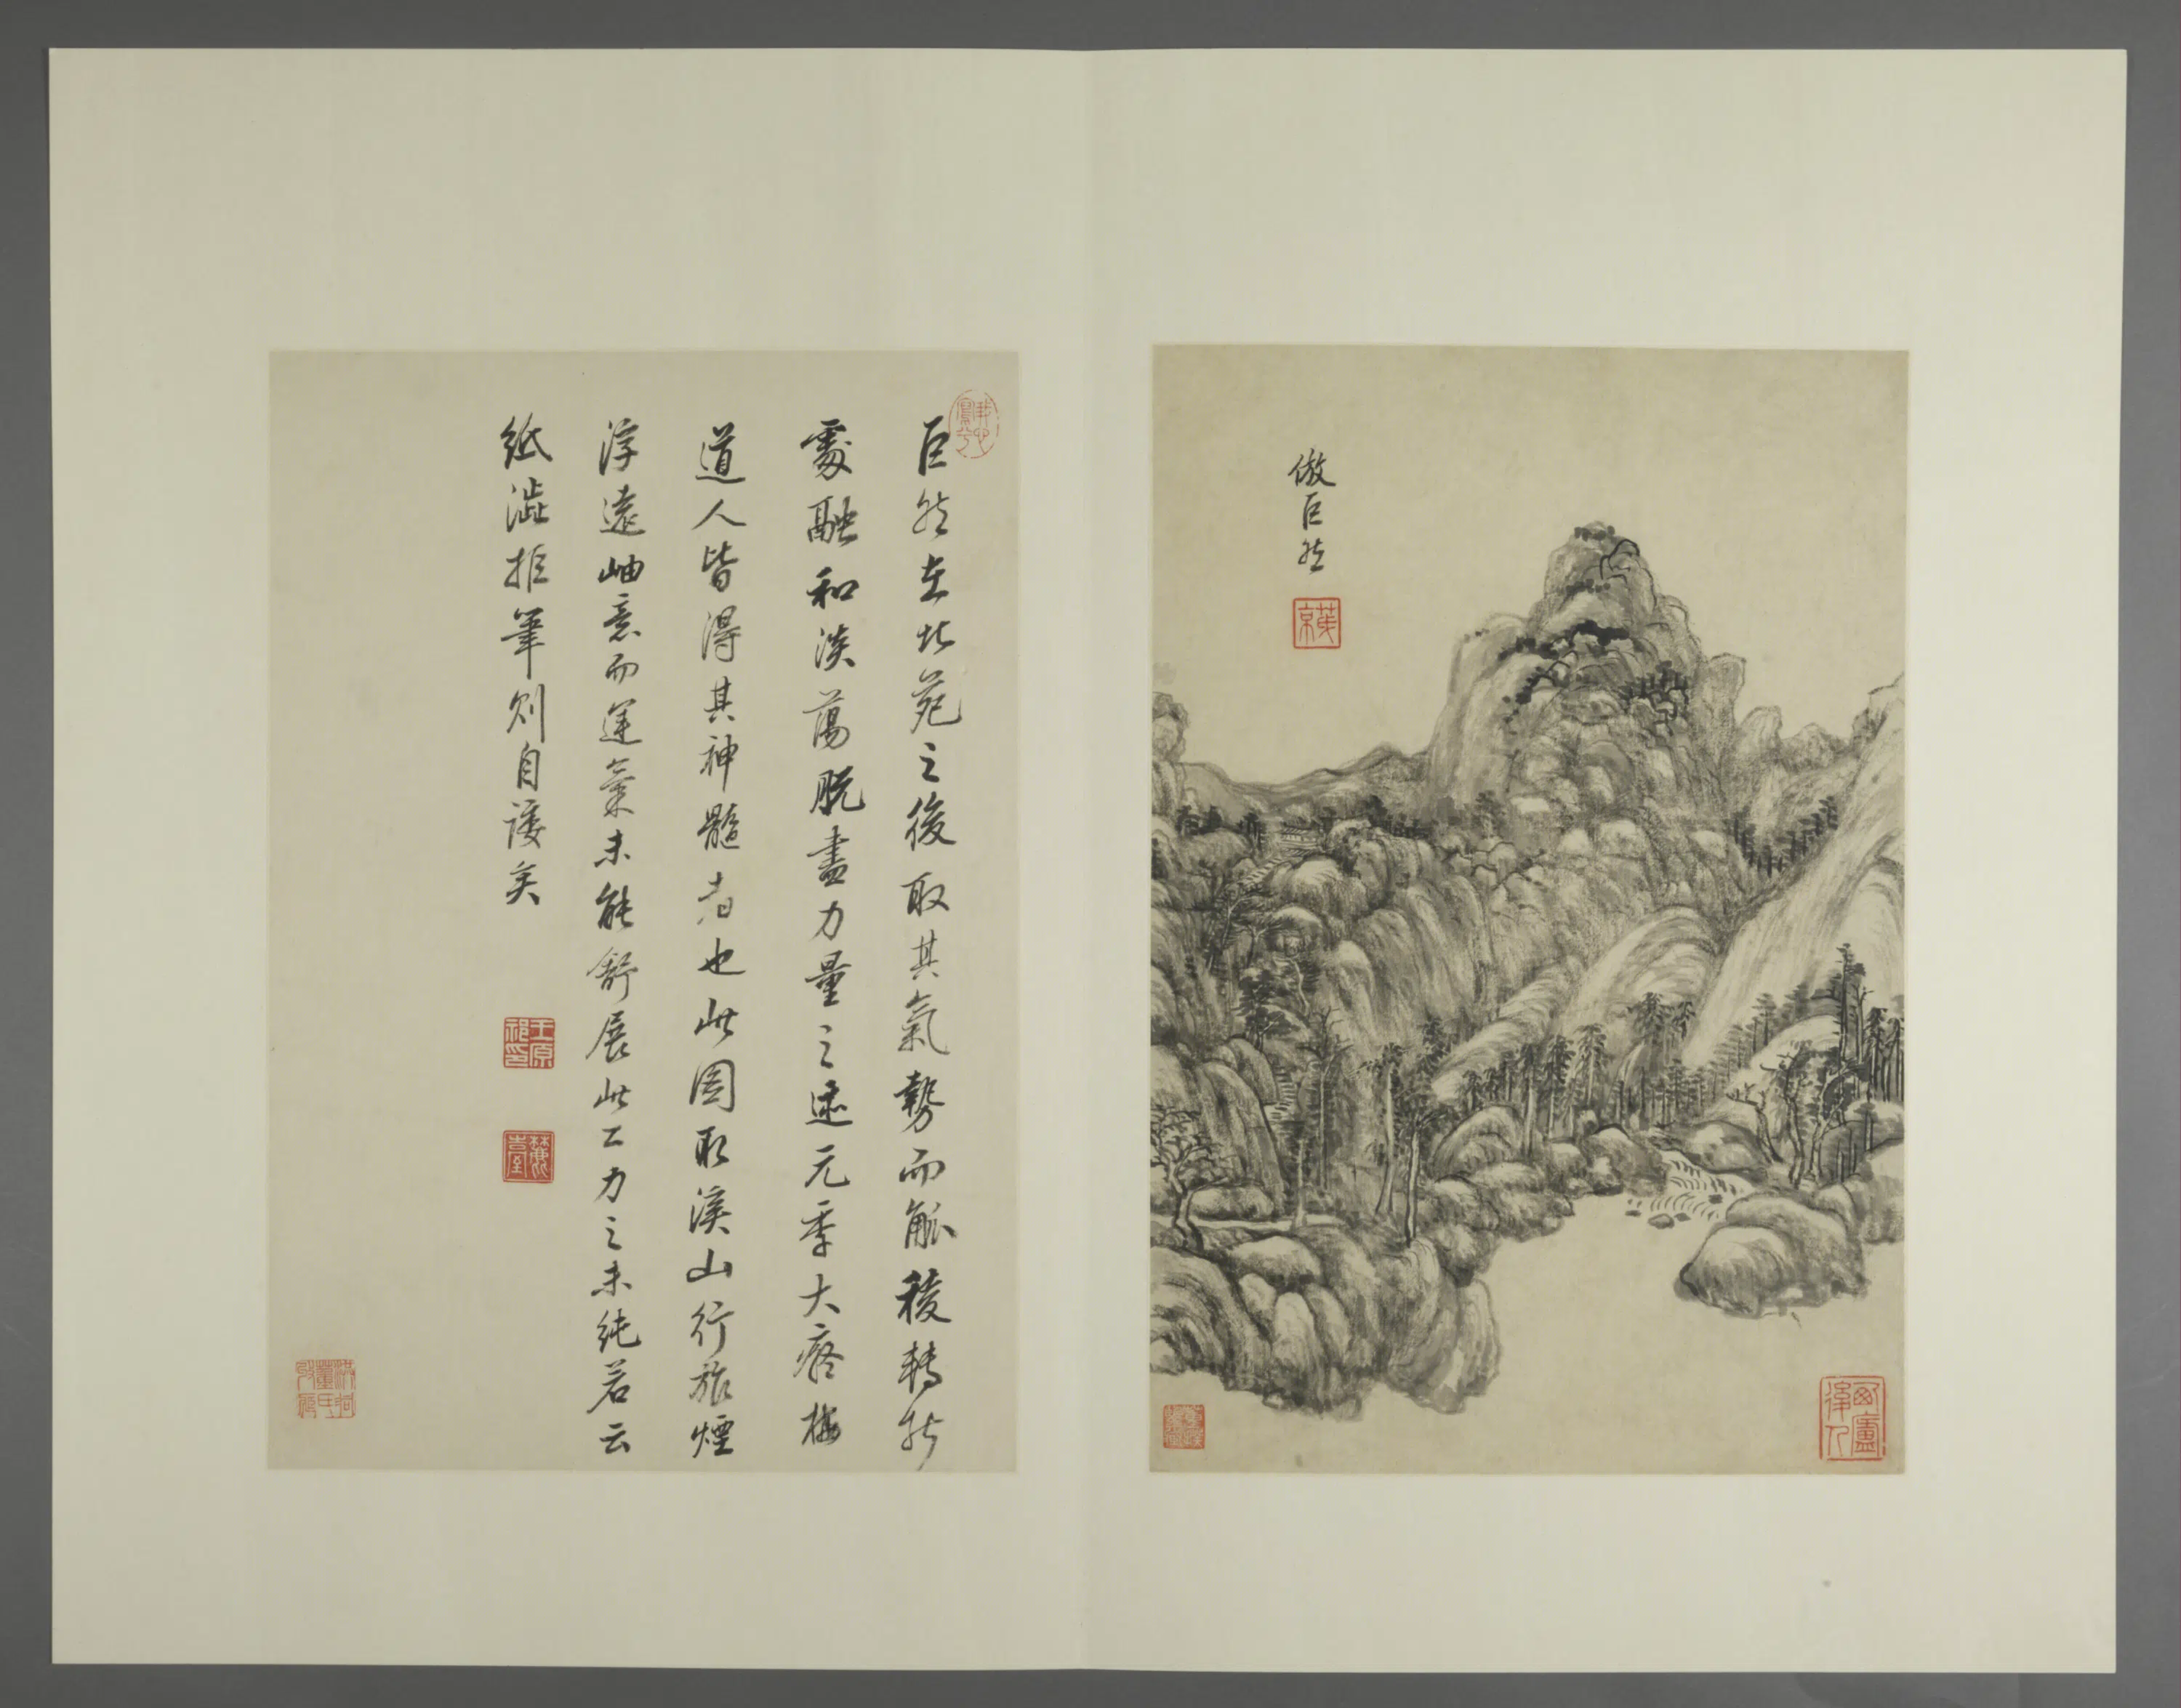 倣巨然
茂京
巨然在北苑之後取其氣勢而觚稜轉折
處融和澹蕩脫盡力量之迹元季大癡梅
道人皆得其神髓者也此圖取溪山行旅煙
浮遠岫意而運氣未能舒展此工力之未純若云
紙澁拒筆則自諉矣
王原祁印
麓臺
西廬後人